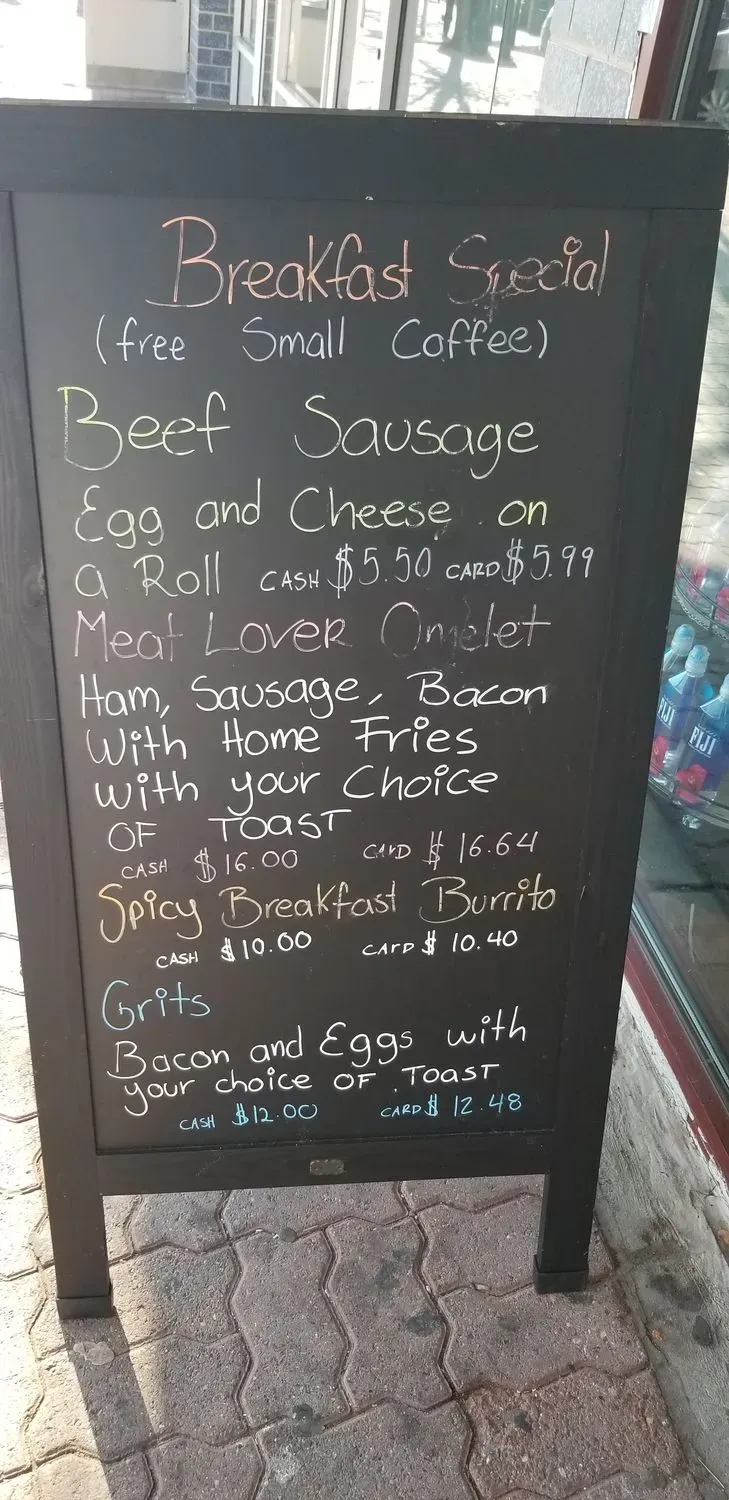 Breakfast Special
(free Small Coffee)
Beef Sausage
Egg and Cheese on
a Roll CASH $5.50 CARD $5.99
Meat LOVER Omelet
Ham, Sausage, Bacon
With Home Fries
with your Choice
OF TOAST
CASH $16.00 CARD $16.64
Spicy Breakfast Burrito
CASH $10.00 CARD $10.40
Grits
Bacon and Eggs with
your choice OF TOAST
CASH $12.00 CARD $12.48
FIJI
FIJI